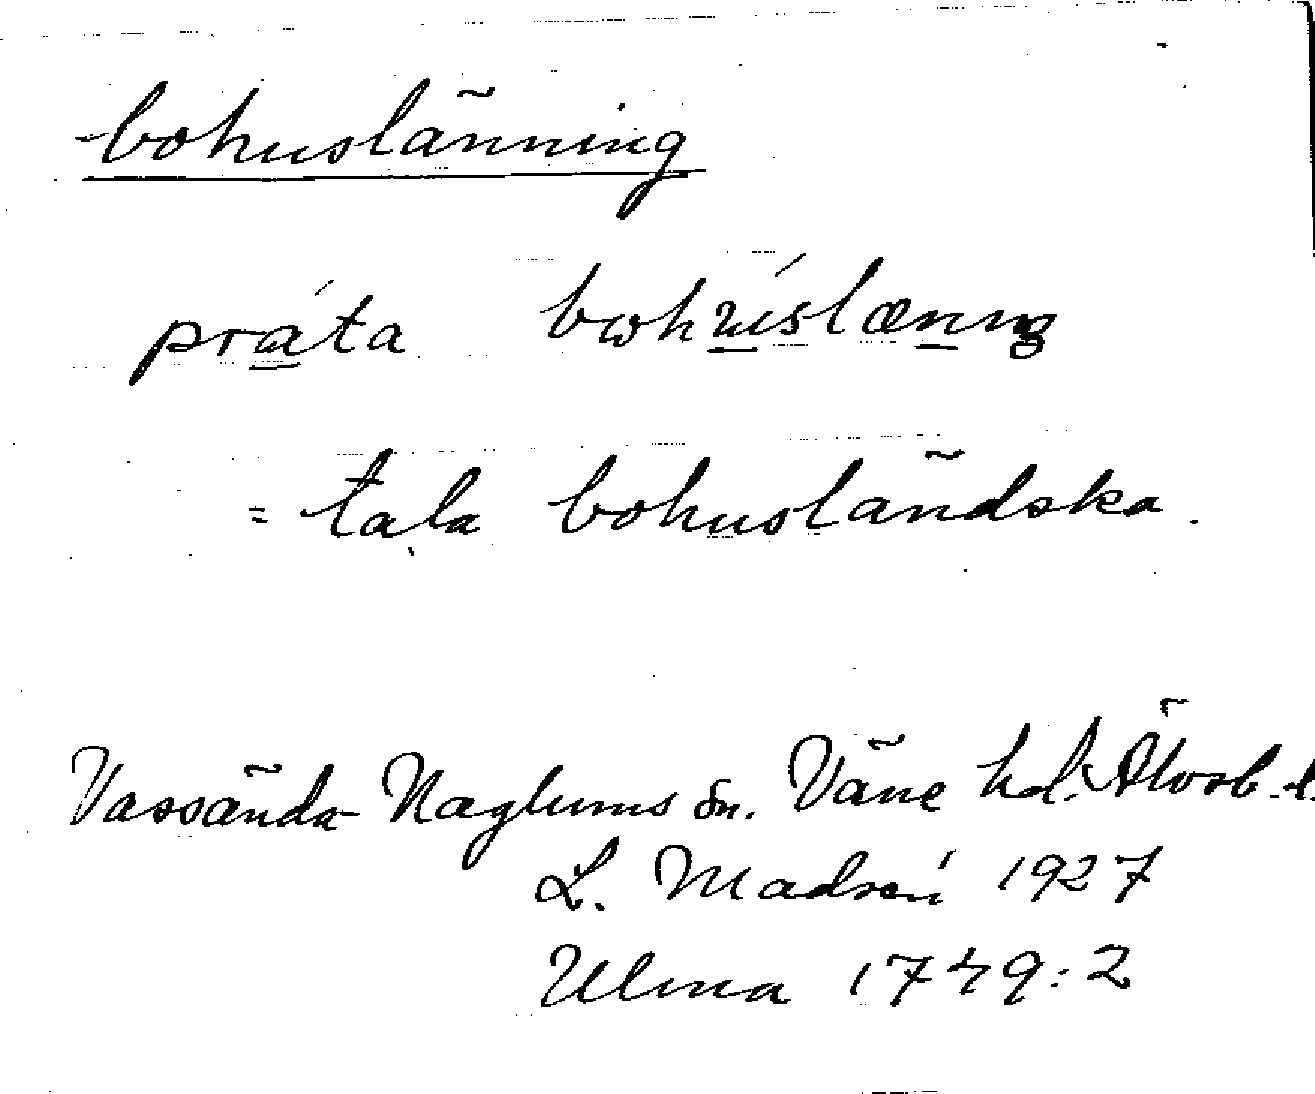 -bohuslänning
práta bωhúslænıng
= tala bohusländska.
Vassända-Naglums sn. Väne hd. Älvsb. l.
L. Madsén 1927
Ulma 1749:2